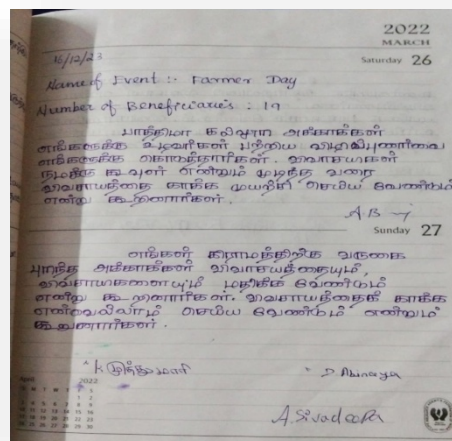 2022
MARCH
16/12/23
Saturday 26
Name of Event :- Farmer Day
Number of Beneficiaries : 19
பாத்திமா கல்லூரி அக்காக்கள்
எங்களுக்கு உழவர்கள் பற்றிய விழிப்புணர்வை
எங்களுக்கு கொடுத்தார்கள். விவசாயிகள்
நமக்கு கடவுள் என்றும் முடிந்த வரை
விவசாயத்தை காக்க முயற்சி செய்ய வேண்டும்
என்று கூறினார்கள்.
Sunday 27
எங்கள் கிராமத்திற்கு வருகை
புரிந்த அக்காக்கள் விவசாயத்தையும்,
விவசாயிகளையும் மதிக்க வேண்டும்
என்று கூறினார்கள். விவசாயத்தைக் காக்க
செய்ய வேண்டும் என்றும்
கூறினார்கள்.
K முத்துமாரி
D Abinaya
A. Sivadeepa
2022